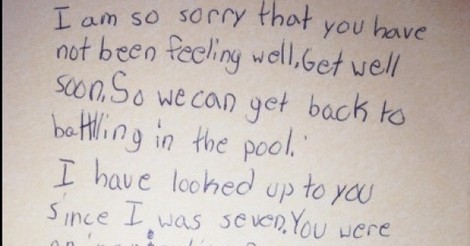 I am so sorry that you have
not been feeling well. Get well
soon. So we can get back to
battling in the pool.
I have looked up to you
since I was seven. You were